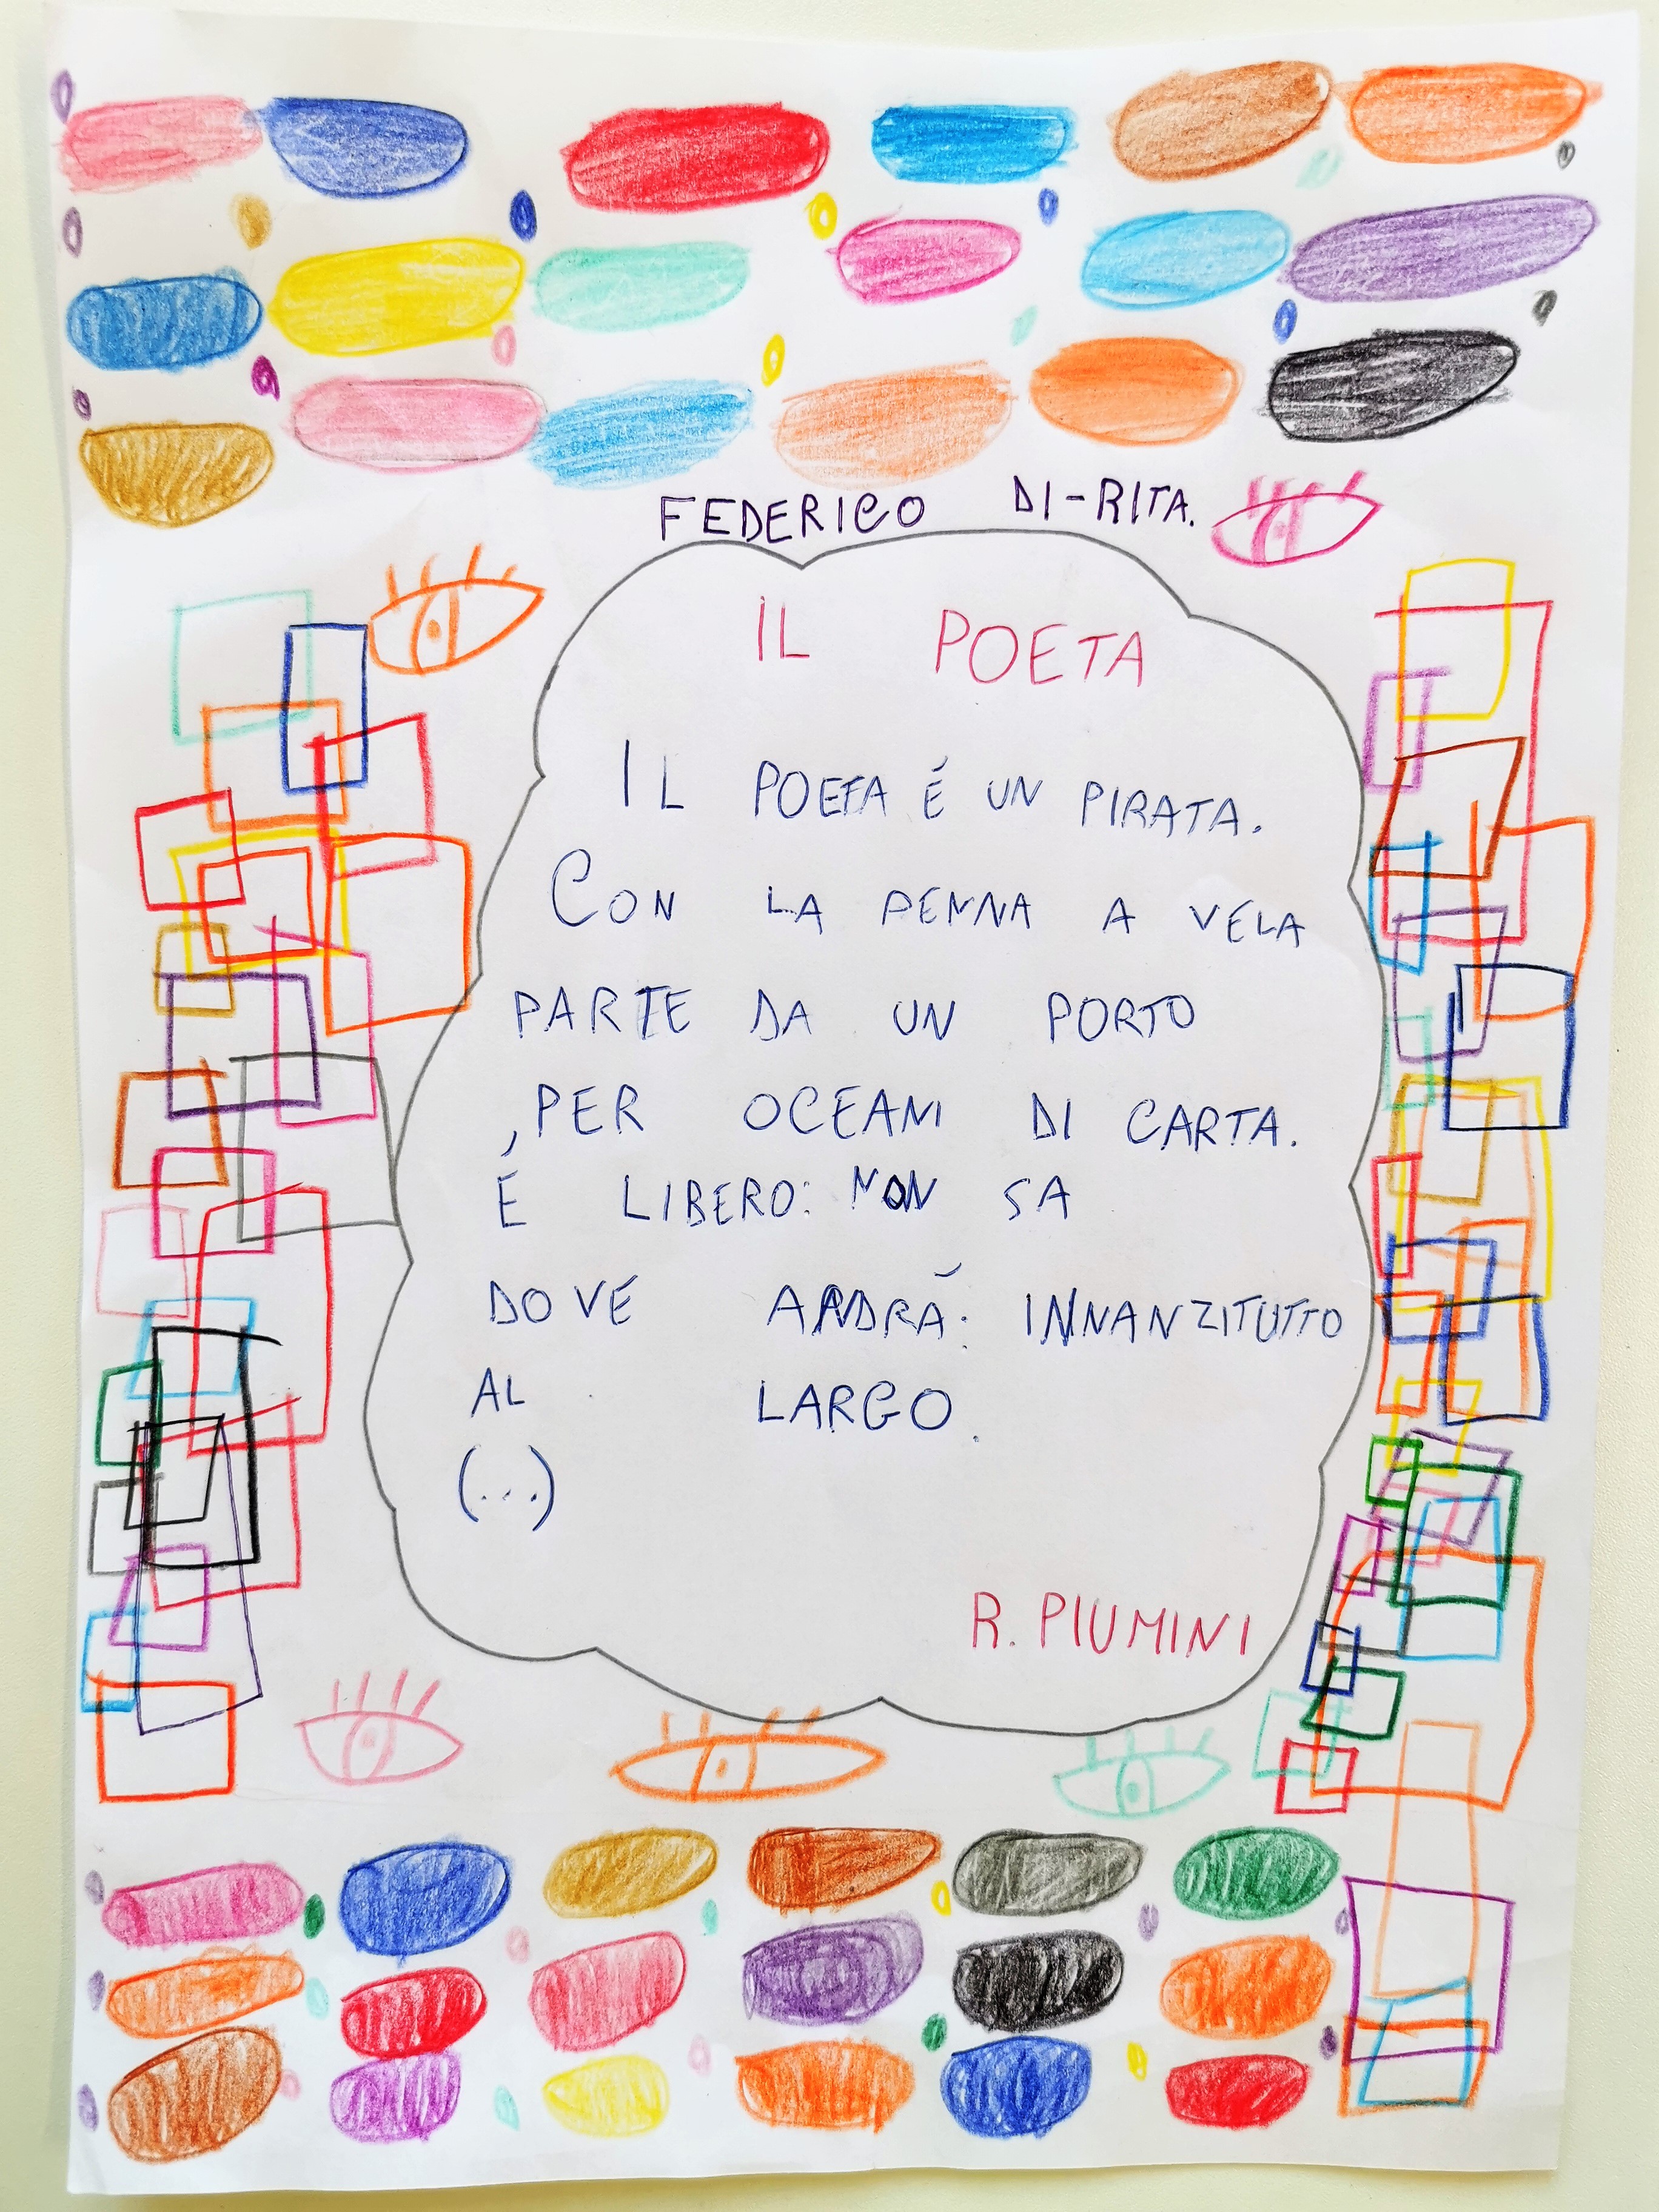 FEDERICO DI-RITA.
IL POETA
IL POETA É UN PIRATA.
CON LA PENNA A VELA
PARTE DA UN PORTO
,PER OCEANI DI CARTA.
É LIBERO: NON SA
DOVE ANDRÁ: INNANZITUTTO
AL LARGO.
(...)
R. PIUMINI